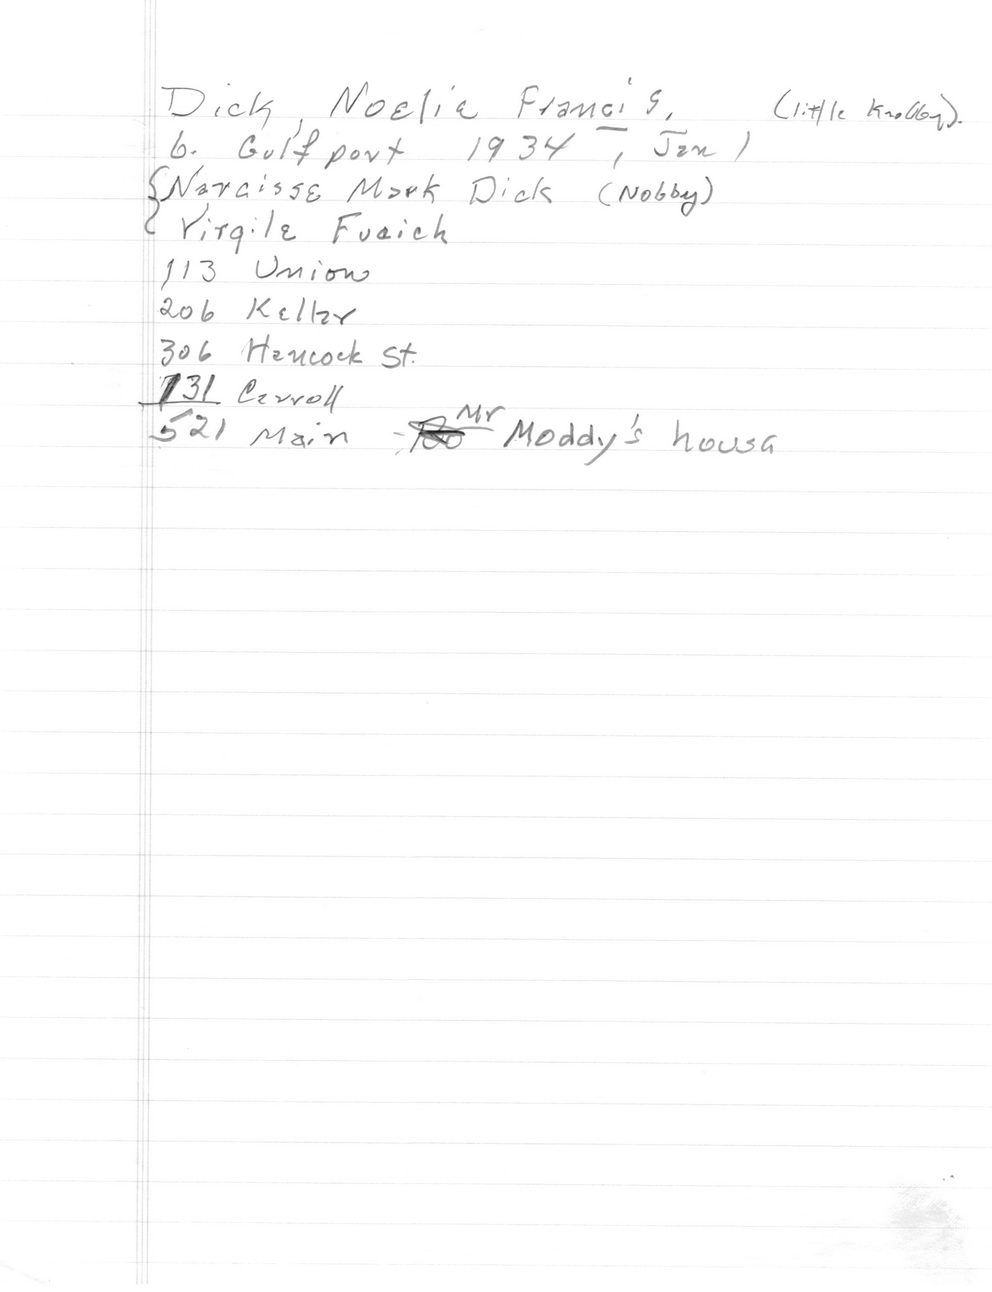 Dick, Noelie Francis, (little Knobby).
b. Gulfport 1934, Jan 1
Narcisse Mark Dick (Nobby)
Virgile Fuaich
113 Union
206 Keller
306 Hancock St.
131 Carroll
521 Main - Mr Moddy's house